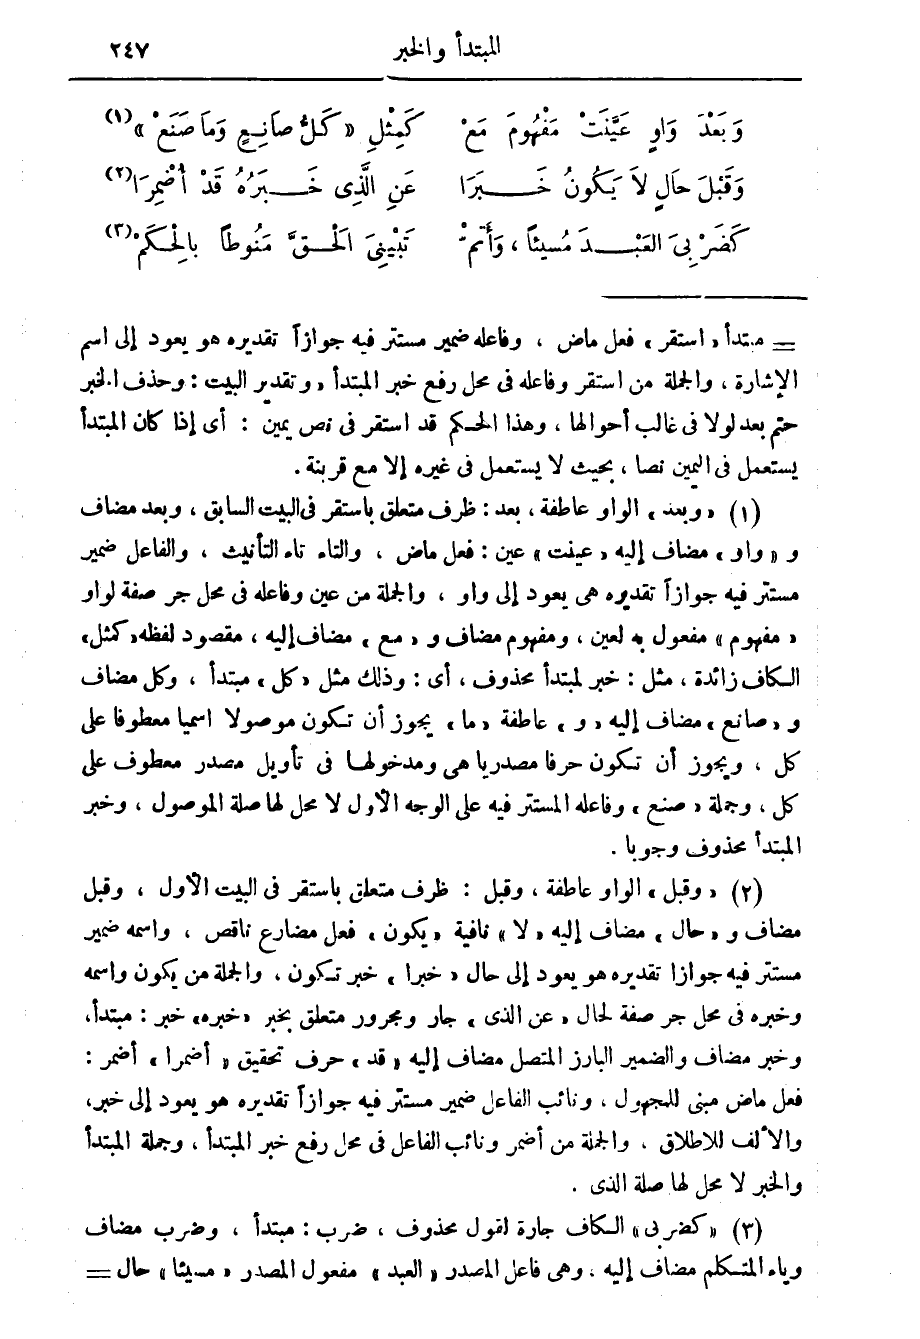 المبتدأ والخبر ٢٤٧
وَبَعْدَ وَاوٍ عَيَّنَتْ مَفْهُومَ مَعْ كَمِثْلِ « كُلُّ صَانِعٍ وَمَا صَنَعْ »(١)
وَقَبْلَ حَالٍ لاَ يَكُونُ خَـــبَرَا عَنِ الَّذِى خَـــبَرُهُ قَدْ أُضْمِرَا(٢)
كَضَرْبِىَ العَبْـــدَ مُسِيئاً ، وَأَتَمّْ تَبْيِينِىَ الْحَـــقَّ مَنُوطاً بِالْحِكَمْ(٣)
= مبتدأ « استقر » فعل ماض ، وفاعله ضمير مستتر فيه جوازاً تقديره هو يعود إلى اسم
الإشارة ، والجملة من استقر وفاعله فى محل رفع خبر المبتدأ ، وتقدير البيت : وحذف الخبر
حتم بعد لولا فى غالب أحوالها ، وهذا الحكم قد استقر فى نص يمين : أى إذا كان المبتدأ
يستعمل فى اليمين نصا ، بحيث لا يستعمل فى غيره إلا مع قرينة .
(١) « وبعد » الواو عاطفة ، بعد : ظرف متعلق باستقر فى البيت السابق ، وبعد مضاف
و « واو » مضاف إليه « عينت » عين : فعل ماض ، والتاء تاء التأنيث ، والفاعل ضمير
مستتر فيه جوازاً تقديره هى يعود إلى واو ، والجملة من عين وفاعله فى محل جر صفة لواو
« مفهوم » مفعول به لعين ، ومفهوم مضاف و « مع » مضاف إليه ، مقصود لفظه « كمثل »
الكاف زائدة ، مثل : خبر لمبتدأ محذوف ، أى : وذلك مثل « كل » مبتدأ ، وكل مضاف
و « صانع » مضاف إليه « و » عاطفة « ما » يجوز أن تكون موصولا اسميا معطوفا على
كل ، ويجوز أن تكون حرفا مصدريا هى ومدخولها فى تأويل مصدر معطوف على
كل ، وجملة « صنع » وفاعله المستتر فيه على الوجه الأول لا محل لها صلة الموصول ، وخبر
المبتدأ محذوف وجوبا .
(٢) « وقبل » الواو عاطفة ، وقبل : ظرف متعلق باستقر فى البيت الأول ، وقبل
مضاف و « حال » مضاف إليه « لا » نافية « يكون » فعل مضارع ناقص ، واسمه ضمير
مستتر فيه جوازا تقديره هو يعود إلى حال « خبرا » خبر تكون ، والجملة من يكون واسمه
وخبره فى محل جر صفة لحال « عن الذى » جار ومجرور متعلق بخبر « خبره » خبر : مبتدأ ،
وخبر مضاف والضمير البارز المتصل مضاف إليه « قد » حرف تحقيق « أضمرا » أضمر :
فعل ماض مبنى للمجهول ، ونائب الفاعل ضمير مستتر فيه جوازاً تقديره هو يعود إلى خبر ،
والألف للاطلاق ، والجملة من أضمر ونائب الفاعل فى محل رفع خبر المبتدأ ، وجملة المبتدأ
والخبر لا محل لها صلة الذى .
(٣) « كضربى » الكاف جارة لقول محذوف ، ضرب : مبتدأ ، وضرب مضاف
وياء المتكلم مضاف إليه ، وهى فاعل المصدر « العبد » مفعول المصدر « مسيئا » حال =